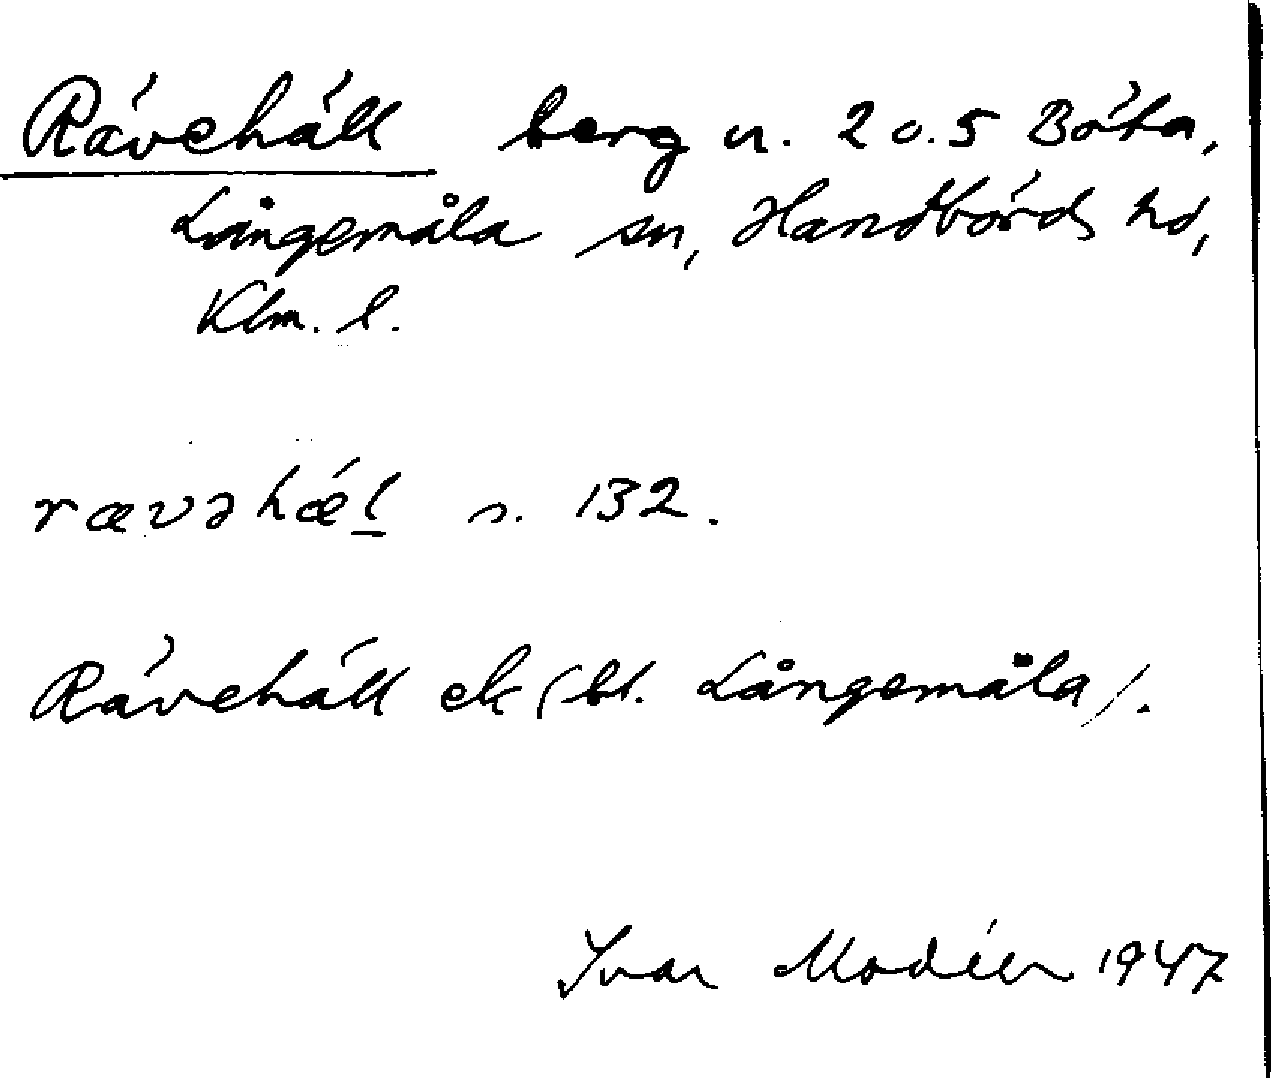 Rävehäll berg n. 2 o. 5 Böta,
Långemåla sn, Handbörds hd,
Klm. l.
rævəhǽl s. 132.
Rävehäll ek (bl. Långemåla).
Ivar Modéer 1947